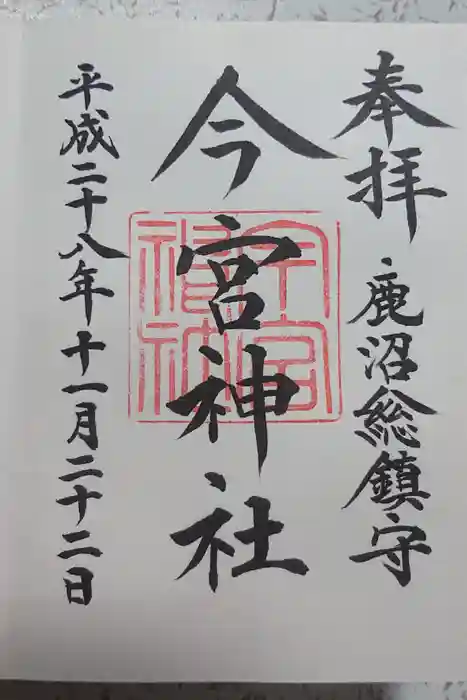 奉拝 鹿沼総鎮守
今宮神社
平成二十八年十一月二十二日